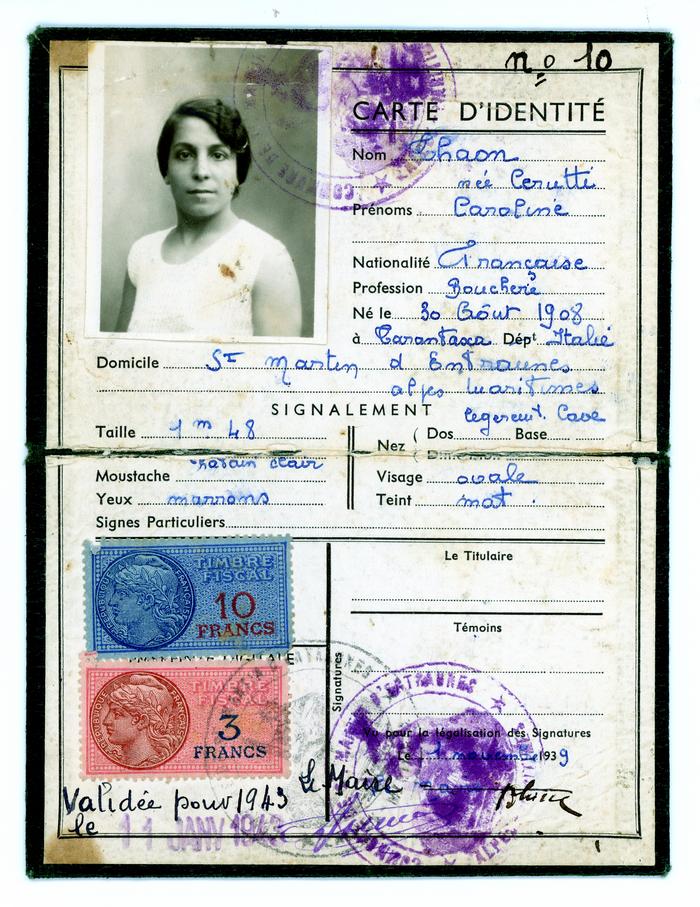 nº 10
CARTE D'IDENTITÉ
Nom Thaon
née Cerutti
Prénoms Caroline
Nationalité Française
Profession Bouchère
Né le 30 Août 1908
à Tarantaxa Dépt Italie
Domicile St Martin d Entraunes
alpes Maritimes
SIGNALEMENT
Taille 1 m 48
Nez ( Dos legeremt. Cave Base
Moustache
Visage ovale
Yeux marrons
Teint mat.
Signes Particuliers
TIMBRE
FISCAL
10
FRANCS
RÉPUBLIQUE FRANÇAISE
EMPREINTE DIGITALE
TIMBRE
FISCAL
3
FRANCS
RÉPUBLIQUE FRANÇAISE
Le Titulaire
Témoins
Signatures
Vu pour la légalisation des Signatures
Le 1 novembre 1939
Le Maire
Validée pour 1943
le 11 JANV 1943